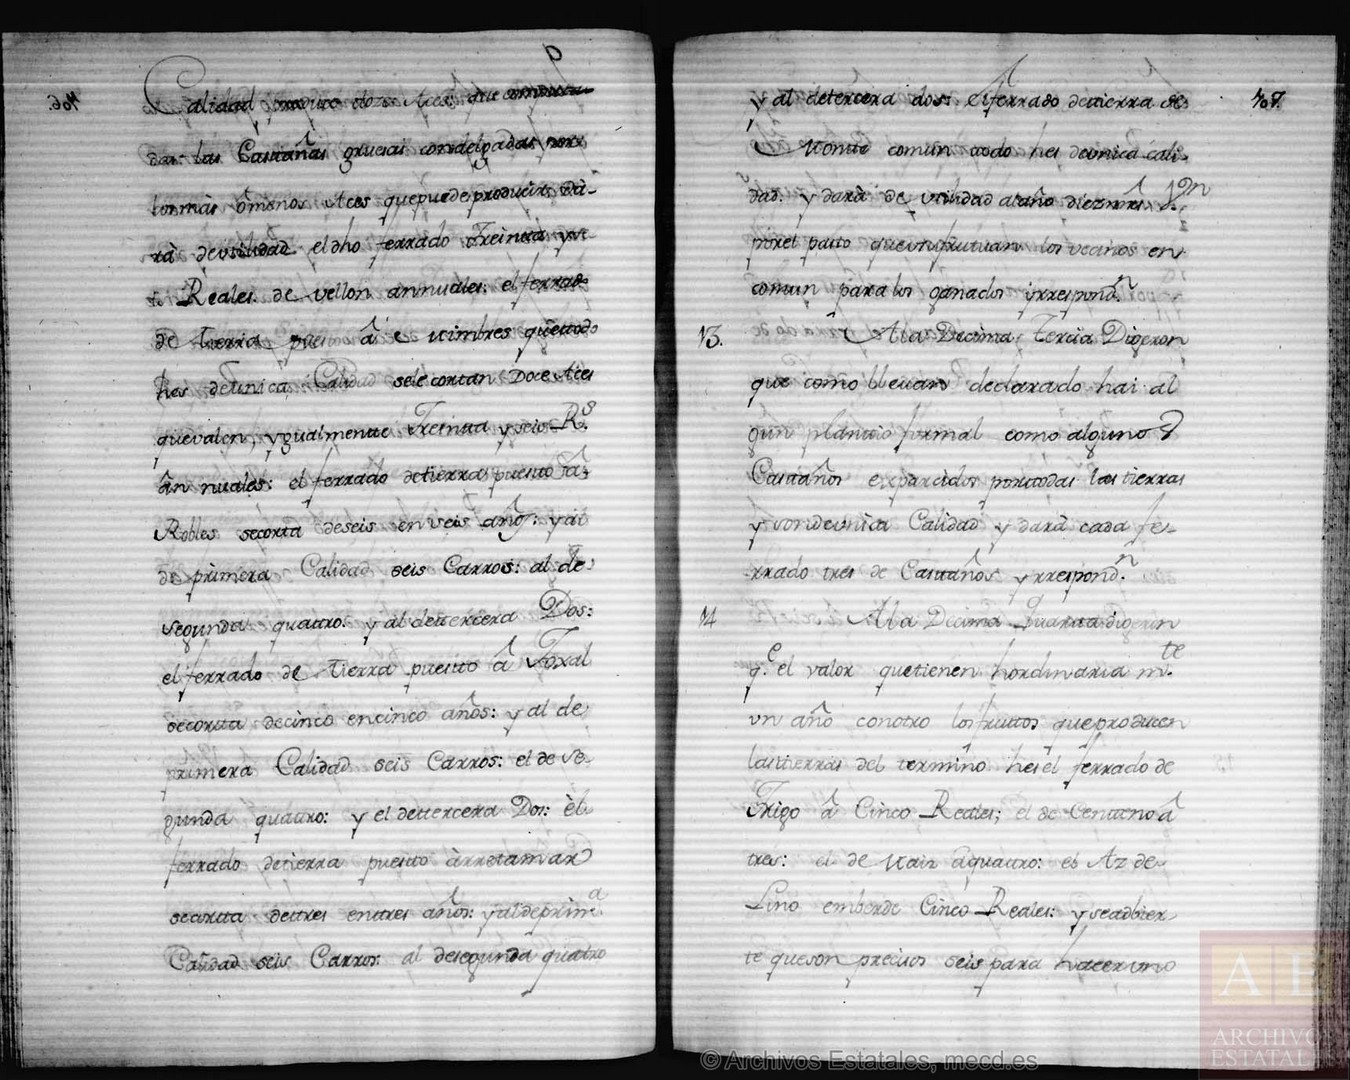 406.
9
Calidad doze Aces: que
das las Castañas gruesas condelgadas
lo más ô menos Aces quepuede producir: Dà-
rà deutilidad eldho ferrado Treinta y
Reales de vellon annuales: el ferrado
de tierra puesto â vimbres quêttodo
hes deunica Calidad sele cortan Doce Aces
quevalen, yygualmente Treinta y seis Rs.
ân nuales: el ferrado detierra puesto â
Robles secorta deseis en seis años: y al
de primera Calidad seis Carros: al de
segunda quatro: y al detercera Dos:
el ferrado de Tierra puesto â Toxal
secorta decinco encinco años: y al de
primera Calidad seis Carros: el de se-
gunda quatro: y el detercera Dos: èl
ferrado detierra puesto àrretamar
secorta detres entres años: yaldeprima
Calidad seis Carros: al desegunda quatro
407.
y al detercera dos: el ferrado detierra de
Monte comun todo hes deunica cali-
dad: y darà de utilidad alaño diezmrs. Vn
porel pasto queusufrutuan los vecinos en
comun para los ganados yrrespondn.
13. Ala Decima Tercia Dijeron
que como llevan declarado hai al
gun plantio formal como alguno D
Castaños exparcidos portodas las tierras
y sondeunica Calidad y darà cada fe-
rrado tres de Castaños yrrespondn.
14 Ala Decima Quarta dijeron
qe. el valor quetienen hordinariamte.
un año conotro los fruttos queproducen
lastierras del termino hesel ferrado de
Trigo â Cinco Reales; el de Centeno â
tres: el de Maiz âquatro: el Az de
Lino emberde Cinco Reales: y seadbier
te queson precisos seis para hacer uno
© Archivos Estatales, mecd.es
AE
ARCHIVOS
ESTATALES